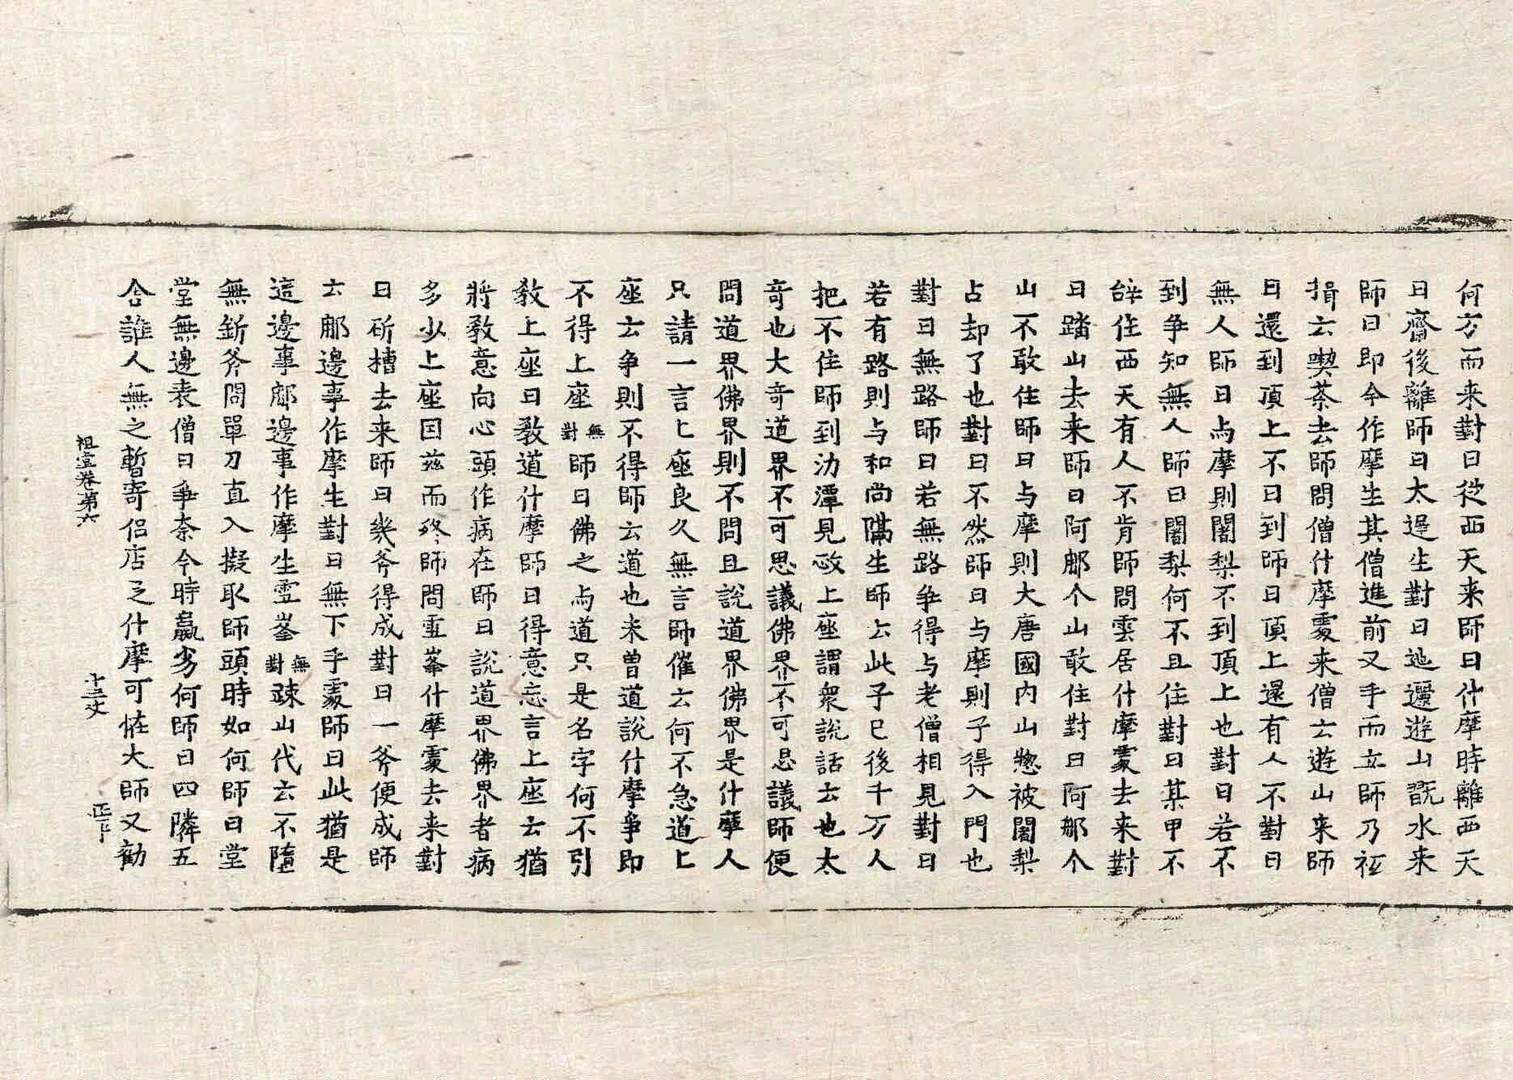 何方而来對曰從西天来師曰什摩時離西天
曰齋後離師曰太遲生對曰迆邐遊山翫水来
師曰即今作摩生其僧進前叉手而立師乃祗
揖云喫茶去師問僧什摩處来僧云遊山来師
曰還到頂上不曰到師曰頂上還有人不對曰
無人師曰与摩則闍梨不到頂上也對曰若不
到争知無人師曰闍梨何不且住對曰某甲不
辝住西天有人不肯師問雲居什摩處去来對
曰踏山去来師曰阿那个山敢住對曰阿那个
山不敢住師曰与摩則大唐國内山惣被闍梨
占却了也對曰不然師曰与摩則子得入門也
對曰無路師曰若無路争得与老僧相見對曰
若有路則与和尚隔生師云此子已後千万人
把不住師到泐潭見政上座謂衆說話云也太
奇也太奇道界不可思議佛界不可思議師便
問道界佛界則不問且說道界佛界是什摩人
只請一言上座良久無言師催云何不急道上
座云争則不得師云道也未曾道說什摩争即
不得上座無對師曰佛之与道只是名字何不引
教上座曰教道什摩師曰得意忘言上座云猶
將教意向心頭作病在師曰說道界佛界者病
多少上座因兹而終師問雪峯什摩處去来對
曰斫槽去来師曰幾斧得成對曰一斧便成師
云那邊事作摩生對曰無下手處師曰此猶是
這邊事那邊事作摩生雪峯無對踈山代云不隨
無斷斧問單刀直入擬取師頭時如何師曰堂
堂無邊表僧曰争奈今時羸劣何師曰四隣五
舍誰人無之暫寄侶店足什摩可怪大師又勸
祖堂卷第六
十三丈